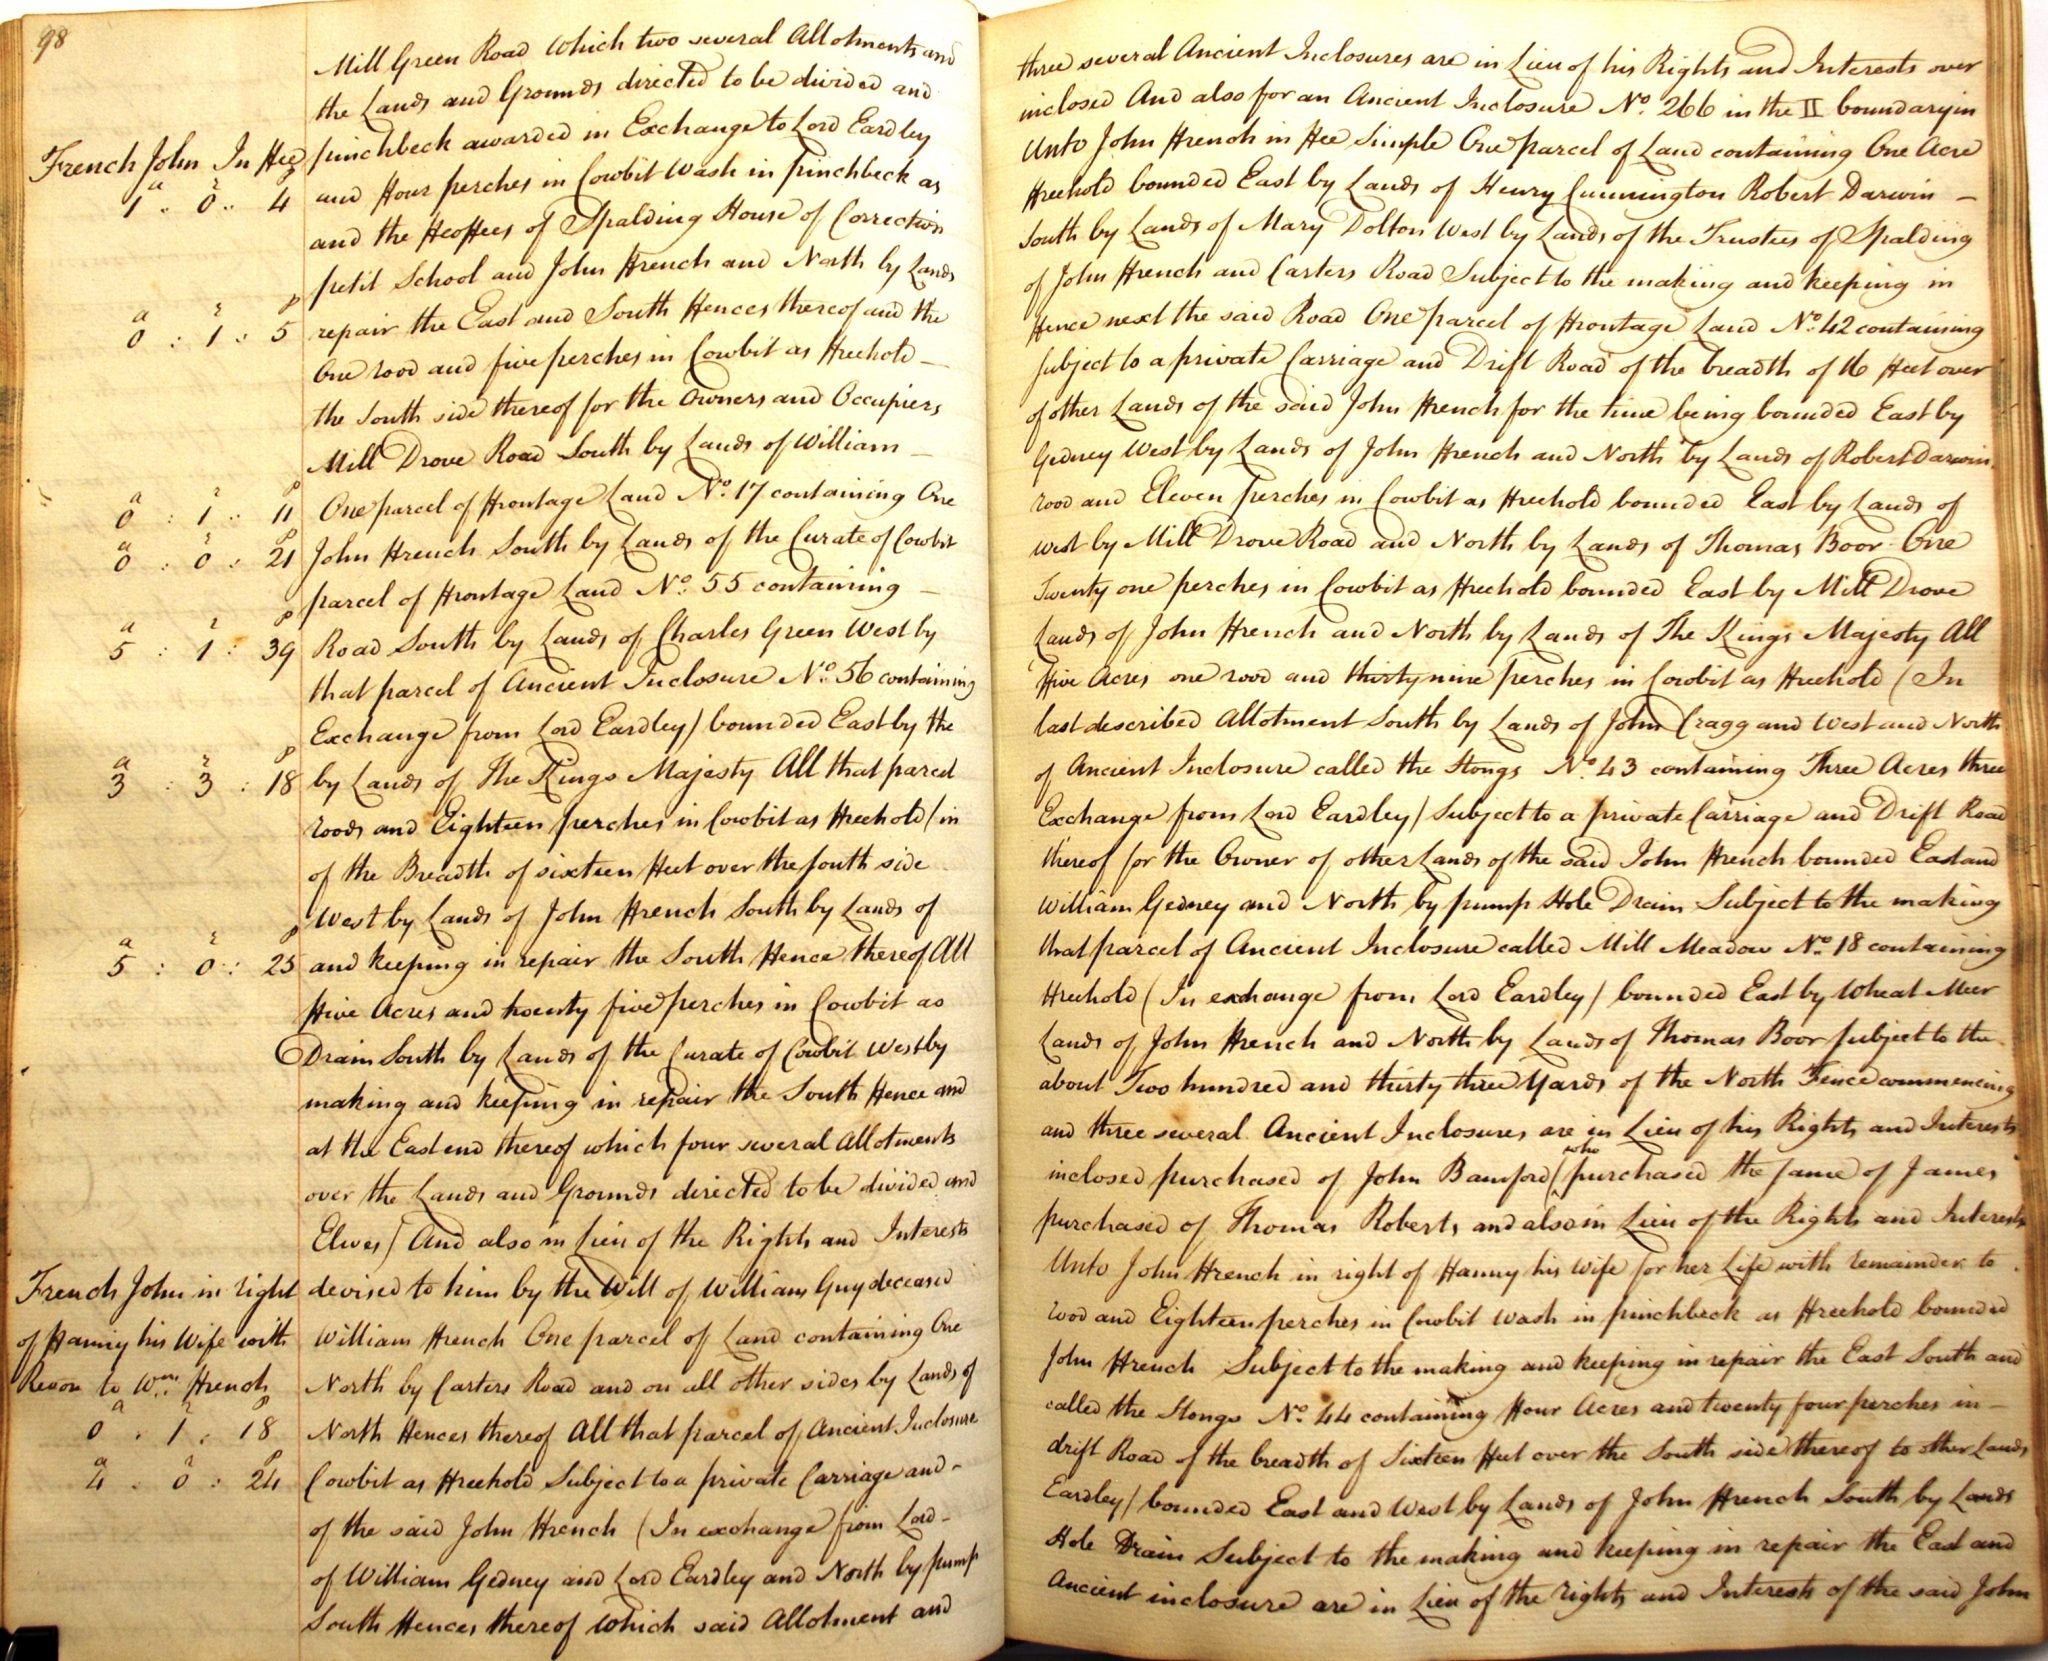 98
Mill Green Road Which two several Allotments and three several Ancient Inclosures are in Lieu of his Rights and Interests over
the Lands and Grounds directed to be divided and inclosed And also for an Ancient Inclosure No. 266 in the II boundary in
French John In Fee pinchbeck awarded in Exchange to Lord Eardley Unto John French in Fee Simple One parcel of Land containing One Acre
a r p
1 .. 0 .. 4 and Four perches in Cowbit Wash in pinchbeck as Freehold bounded East by Lands of Henry Cunnington Robert Darwin –
and the Feoffees of Spalding House of Correction South by Lands of Mary Dolton West by Lands of the Trustees of Spalding
petit School and John French and North by Lands of John French and Carters Road Subject to the making and keeping in
a r p
0 : 1 : 5 repair the East and South Fences thereof and the Fence next the said Road One parcel of Frontage Land No. 42 containing
One rood and five perches in Cowbit as Freehold – Subject to a private Carriage and Drift Road of the breadth of 16 Feet over
the South side thereof for the Owners and Occupiers of other Lands of the said John French for the time being bounded East by
Mill Drove Road South by Lands of William – Gedney West by Lands of John French and North by Lands of Robert Darwin.
a r p
0 : 1 : 11 One parcel of Frontage Land No. 17 containing One rood and Eleven perches in Cowbit as Freehold bounded East by Lands of
a r p
0 : 0 : 21 John French South by Lands of the Curate of Cowbit West by Mill Drove Road and North by Lands of Thomas Boor One
parcel of Frontage Land No. 55 containing – Twenty one perches in Cowbit as Freehold bounded East by Mill Drove
a r p
5 : 1 : 39 Road South by Lands of Charles Green West by Lands of John French and North by Lands of The Kings Majesty All
that parcel of Ancient Inclosure No. 56 containing Five Acres one rood and thirty nine perches in Cowbit as Freehold (In
Exchange from Lord Eardley) bounded East by the last described Allotment South by Lands of John Cragg and West and North
a r p
3 : 3 : 18 by Lands of The Kings Majesty All that parcel of Ancient Inclosure called the Stongs No. 43 containing Three Acres three
roods and Eighteen perches in Cowbit as Freehold (in Exchange from Lord Eardley) Subject to a private Carriage and Drift Road
of the Breadth of sixteen Feet over the South side thereof for the Owner of other Lands of the said John French bounded East and
West by Lands of John French South by Lands of William Gedney and North by pump Hole Drain Subject to the making
a r p
5 : 0 : 25 and keeping in repair the South Fence thereof All that parcel of Ancient Inclosure called Mill Meadow No. 18 containing
Five Acres and twenty five perches in Cowbit as Freehold (In exchange from Lord Eardley) bounded East by Wheat Meer
Drain South by Lands of the Curate of Cowbit West by Lands of John French and North by Lands of Thomas Boor Subject to the
making and keeping in repair the South Fence and about Two hundred and thirty three Yards of the North Fence commencing
at the East end thereof which four several Allotments and three several Ancient Inclosures are in Lieu of his Rights and Interests
over the Lands and Grounds directed to be divided and inclosed purchased of John Bamford (who purchased the same of James
Elwes) And also in Lieu of the Rights and Interests purchased of Thomas Roberts and also in Lieu of the Rights and Interests
French John in right devised to him by the Will of William Guy deceased Unto John French in right of Fanny his Wife for her Life with remainder to
of Fanny his Wife with William French One parcel of Land containing One rood and Eighteen perches in Cowbit Wash in pinchbeck as Freehold bounded
Revon to Wm. French North by Carters Road and on all other sides by Lands of John French Subject to the making and keeping in repair the East South and
a r p
0 . 1 . 18 North Fences thereof All that parcel of Ancient Inclosure called the Stongs No. 44 containing Four Acres and twenty four perches in –
a r p
4 . 0 : 24 Cowbit as Freehold Subject to a private Carriage and – drift Road of the breadth of Sixteen Feet over the South side thereof to other Lands
of the said John French (In exchange from Lord – Eardley) bounded East and West by Lands of John French South by Lands
of William Gedney and Lord Eardley and North by pump Hole Drain Subject to the making and keeping in repair the East and
South Fences thereof Which said Allotment and Ancient inclosure are in Lieu of the rights and Interests of the said John